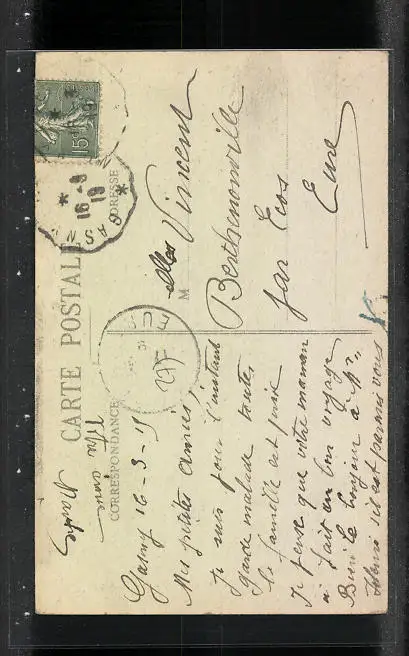 CARTE POSTALE
CORRESPONDANCE
ADRESSE
15c
GASNY
16-3
19
Gasny 16-3-19
Mes petites amies,
Je suis pour l'instant
garde malade toute
la famille est prise
Je pense que votre maman
a fait un bon voyage
Bien le bonjour à Mr
s'il est parmis vous
Votre amie
M
elles Vincent
Berthenonville
par Ecos
Eure